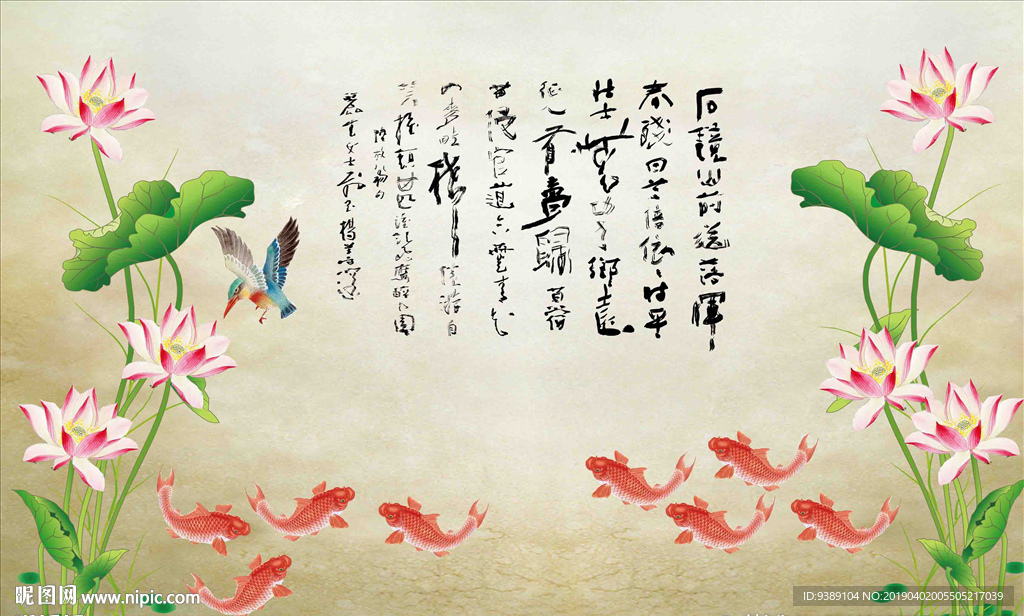 石鏡山前送落暉
春殘回首倍依依時平
壯士無功老鄉遠
征人有夢歸苜蓿
苗侵官道合蕪菁花
入麥畦稀倦遊自
笑摧頹甚誰記飛鷹醉打圍
陸放翁句
女士 楊善深
昵图网 www.nipic.com
ID:9389104 NO:20190402005505217039